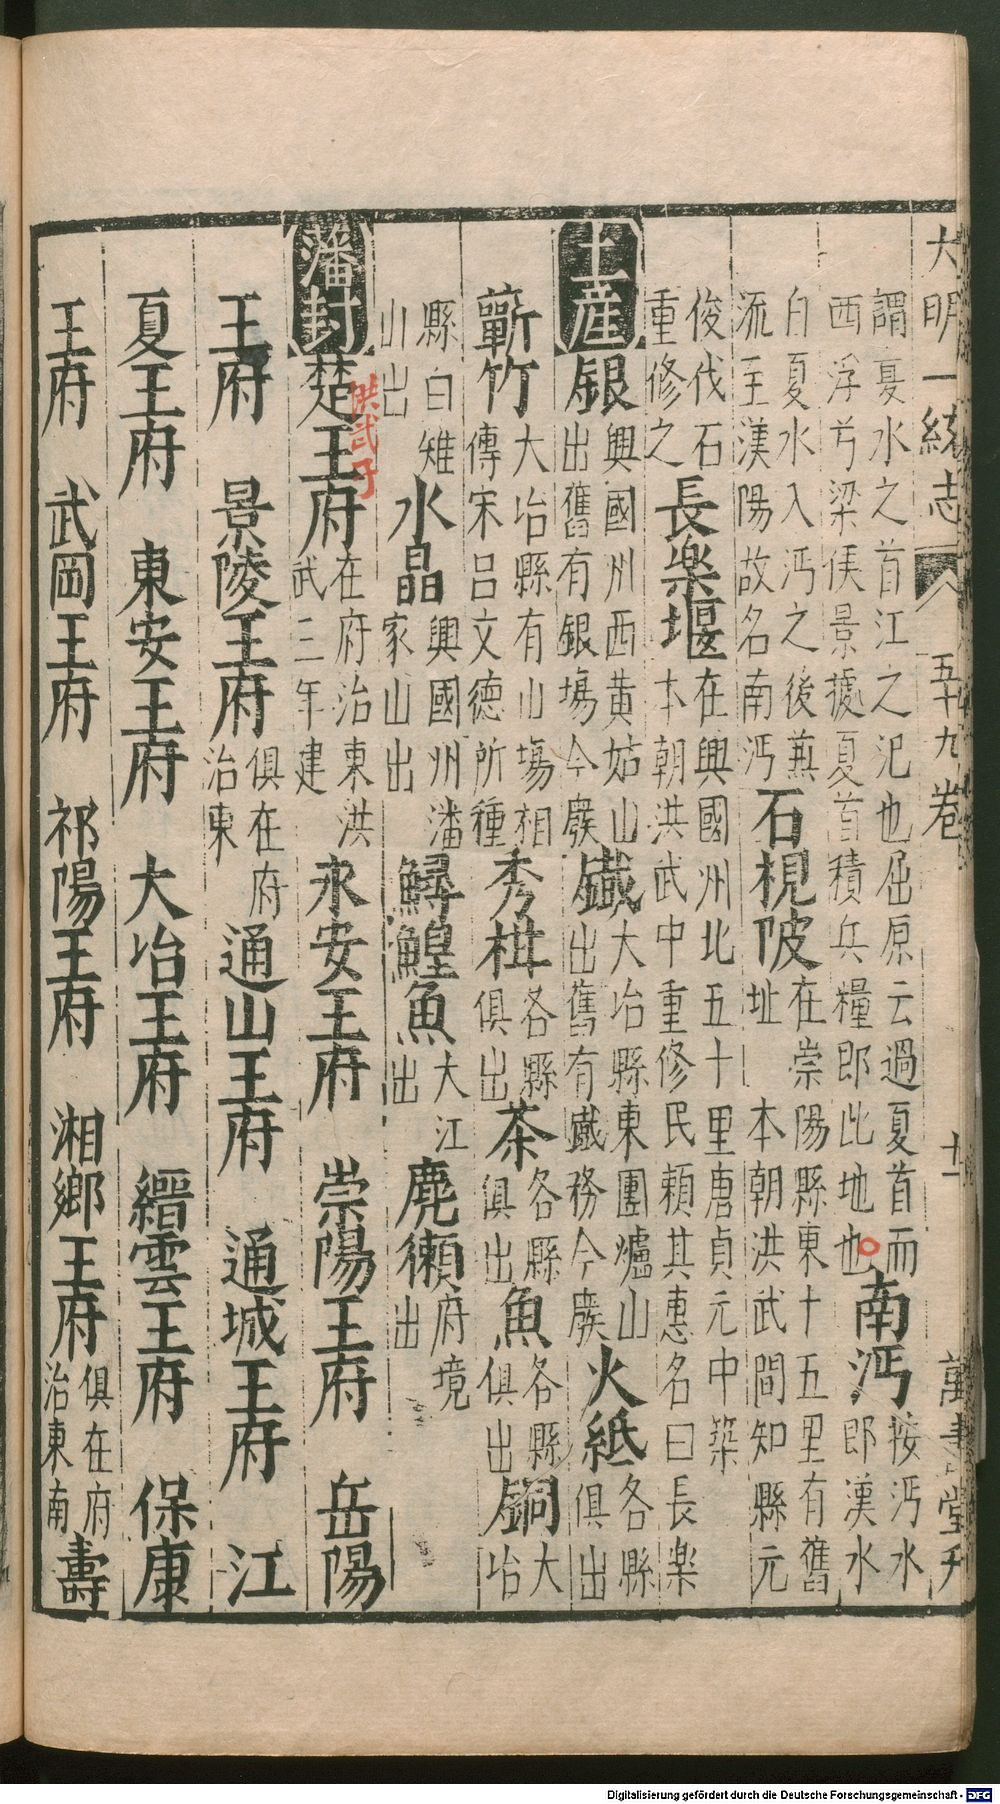 大明一統志 五十九卷 十一 萬壽堂刋
謂夏水之首江之汜也屈原云過夏首而
西浮兮梁侯景據夏首積兵糧即此地也
南沔
按沔水
即漢水
自夏水入沔之後兼
流至漢陽故名南沔
石梘陂
在崇陽縣東十五里有舊
址 本朝洪武間知縣元
俊伐石
重修之
長樂堰
在興國州北五十里唐貞元中築
本朝洪武中重修民賴其惠名曰長樂
土產
銀
興國州西黃姑山
出舊有銀場今廢
鐵
大冶縣東圍爐山
出舊有鐵務今廢
火紙
各縣
俱出
蘄竹
大冶縣有山場相
傳宋呂文德所種
秀柑
各縣
俱出
茶
各縣
俱出
魚
各縣
俱出
銅
大
冶
縣白雉
山出
水晶
興國州潘
家山出
鱘鰉魚
大江
出
麂獺
府境
出
潘封
楚王府
洪武子
在府治東洪
武三年建
永安王府 崇陽王府 岳陽
王府 景陵王府
俱在府
治東
通山王府 通城王府 江
夏王府 東安王府 大冶王府 縉雲王府 保康
王府 武岡王府 祁陽王府 湘鄉王府
俱在府
治東南
壽
Digitalisierung gefördert durch die Deutsche Forschungsgemeinschaft - DFG